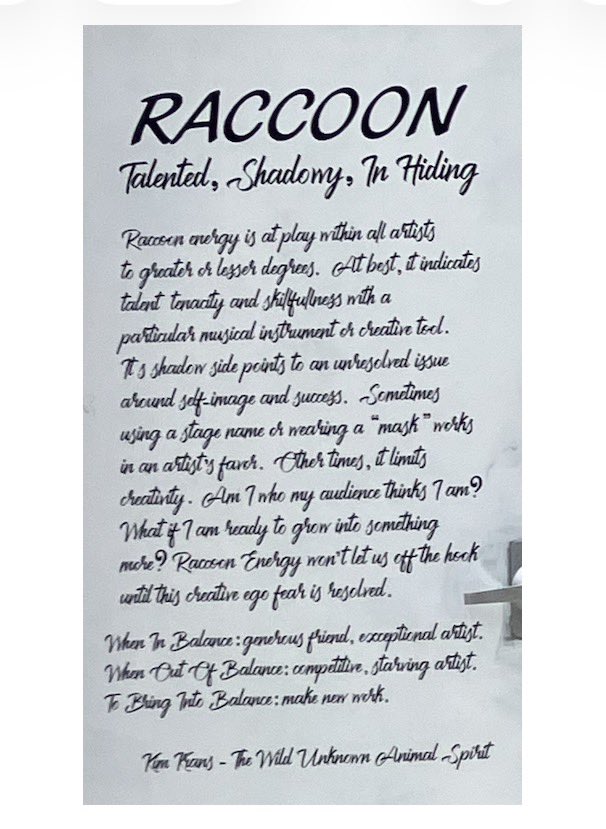 RACCOON
Talented, Shadowy, In Hiding
Raccoon energy is at play within all artists
to greater or lesser degrees. At best, it indicates
talent tenacity and skillfullness with a
particular musical instrument or creative tool.
It's shadow side points to an unresolved issue
around self-image and success. Sometimes
using a stage name or wearing a "mask" works
in an artist's favor. Other times, it limits
creativity. Am I who my audience thinks I am?
What if I am ready to grow into something
more? Raccoon Energy won't let us off the hook
until this creative ego fear is resolved.
When In Balance: generous friend, exceptional artist.
When Out Of Balance: competitive, starving artist.
To Bring Into Balance: make new work.
Kim Krans - The Wild Unknown Animal Spirit